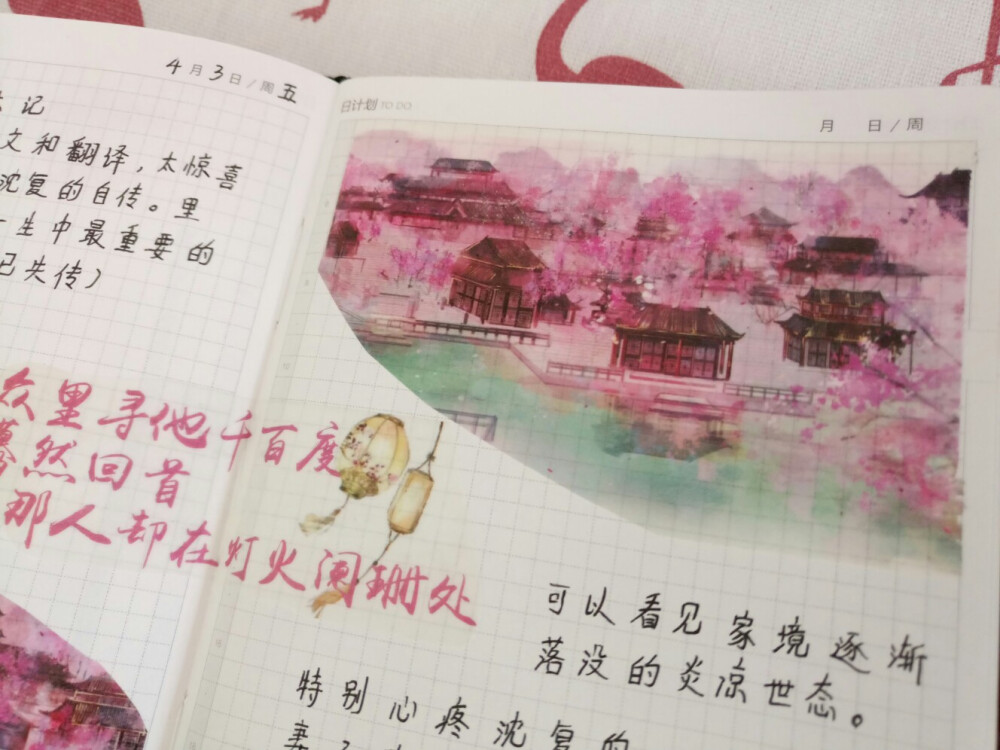 4月3日/周五
记
文和翻译，太惊喜
沈复的自传。里
生中最重要的
已失传）
众里寻他千百度
蓦然回首
那人却在灯火阑珊处
日计划 TO DO
月 日/周
可以看见家境逐渐
落没的炎凉世态。
特别心疼沈复的
妻